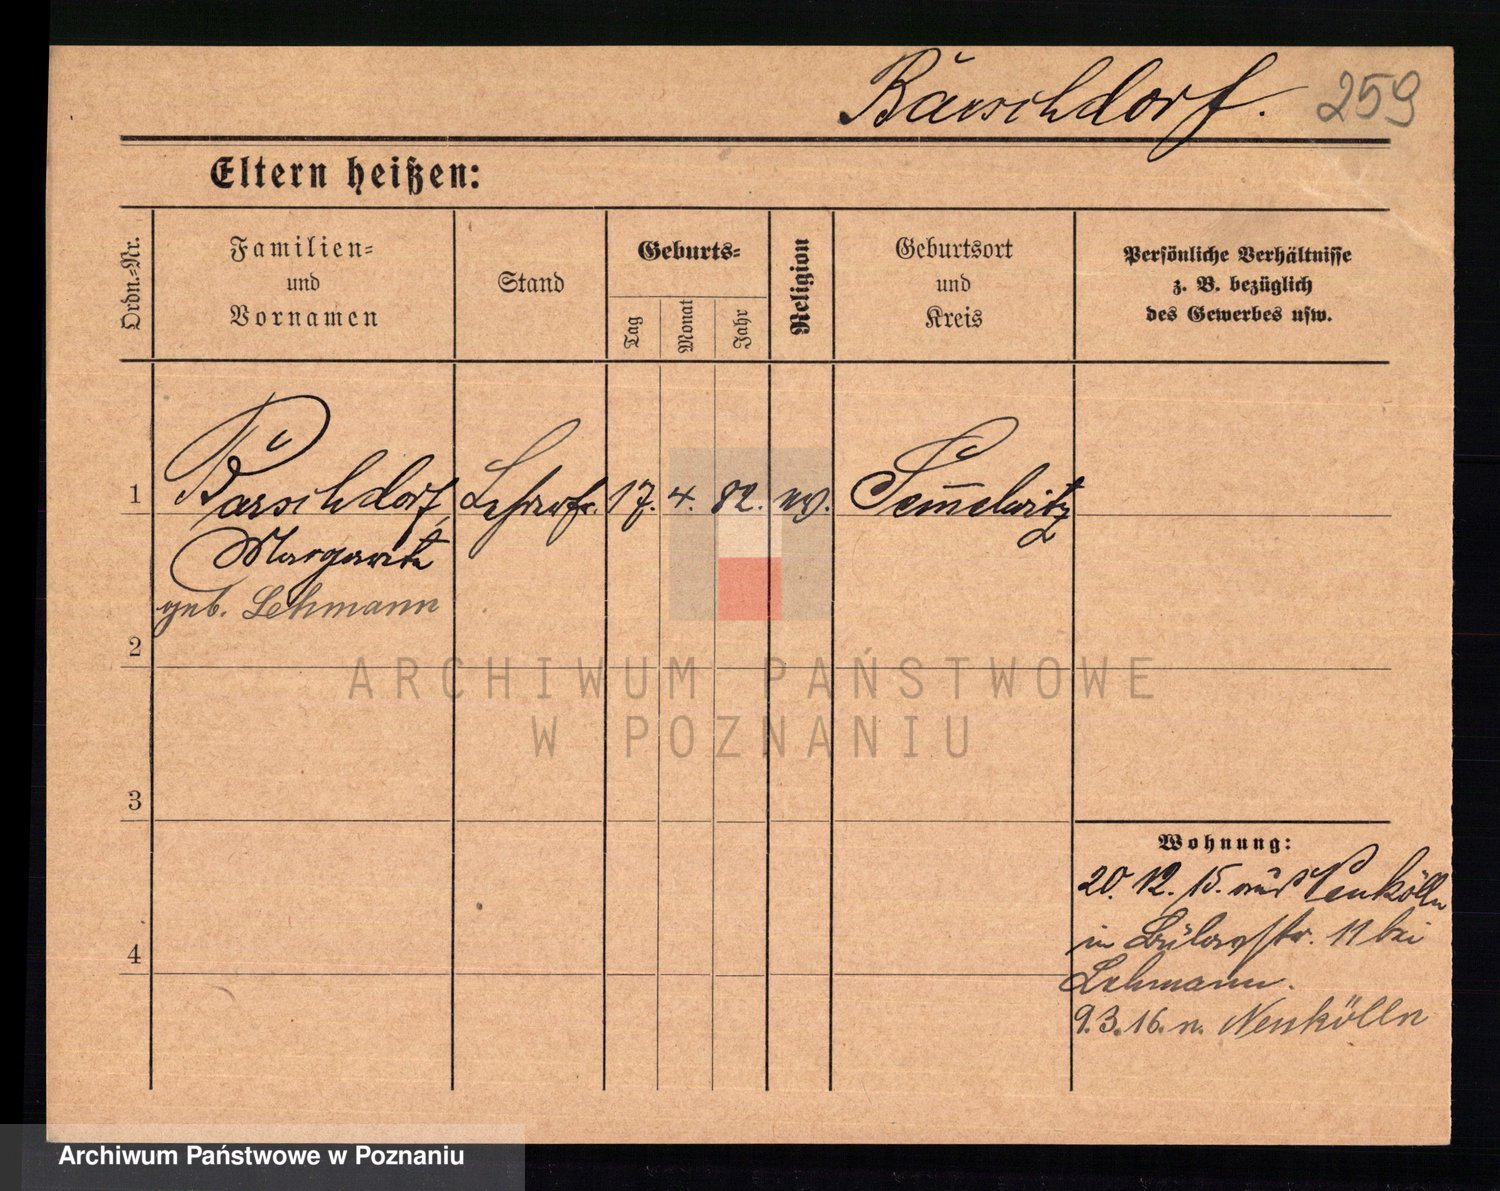 Bärschdorf. 259
Eltern heißen:
Ordn.-Nr.
Familien-
und
Vornamen
Stand
Geburts-
Tag
Monat
Jahr
Religion
Geburtsort
und
Kreis
Persönliche Verhältnisse
z. B. bezüglich
des Gewerbes usw.
1 Barschdorf, Lehrerfr. 17. 4. 82. ev. Semmelwitz
Margarete
geb. Lehmann
2
3
4
Wohnung:
20. 12. 15. aus Neukölln
in Bülowstr. 11 bei
Lehmann.
9.3.16. n. Neukölln
ARCHIWUM PAŃSTWOWE
W POZNANIU
Archiwum Państwowe w Poznaniu